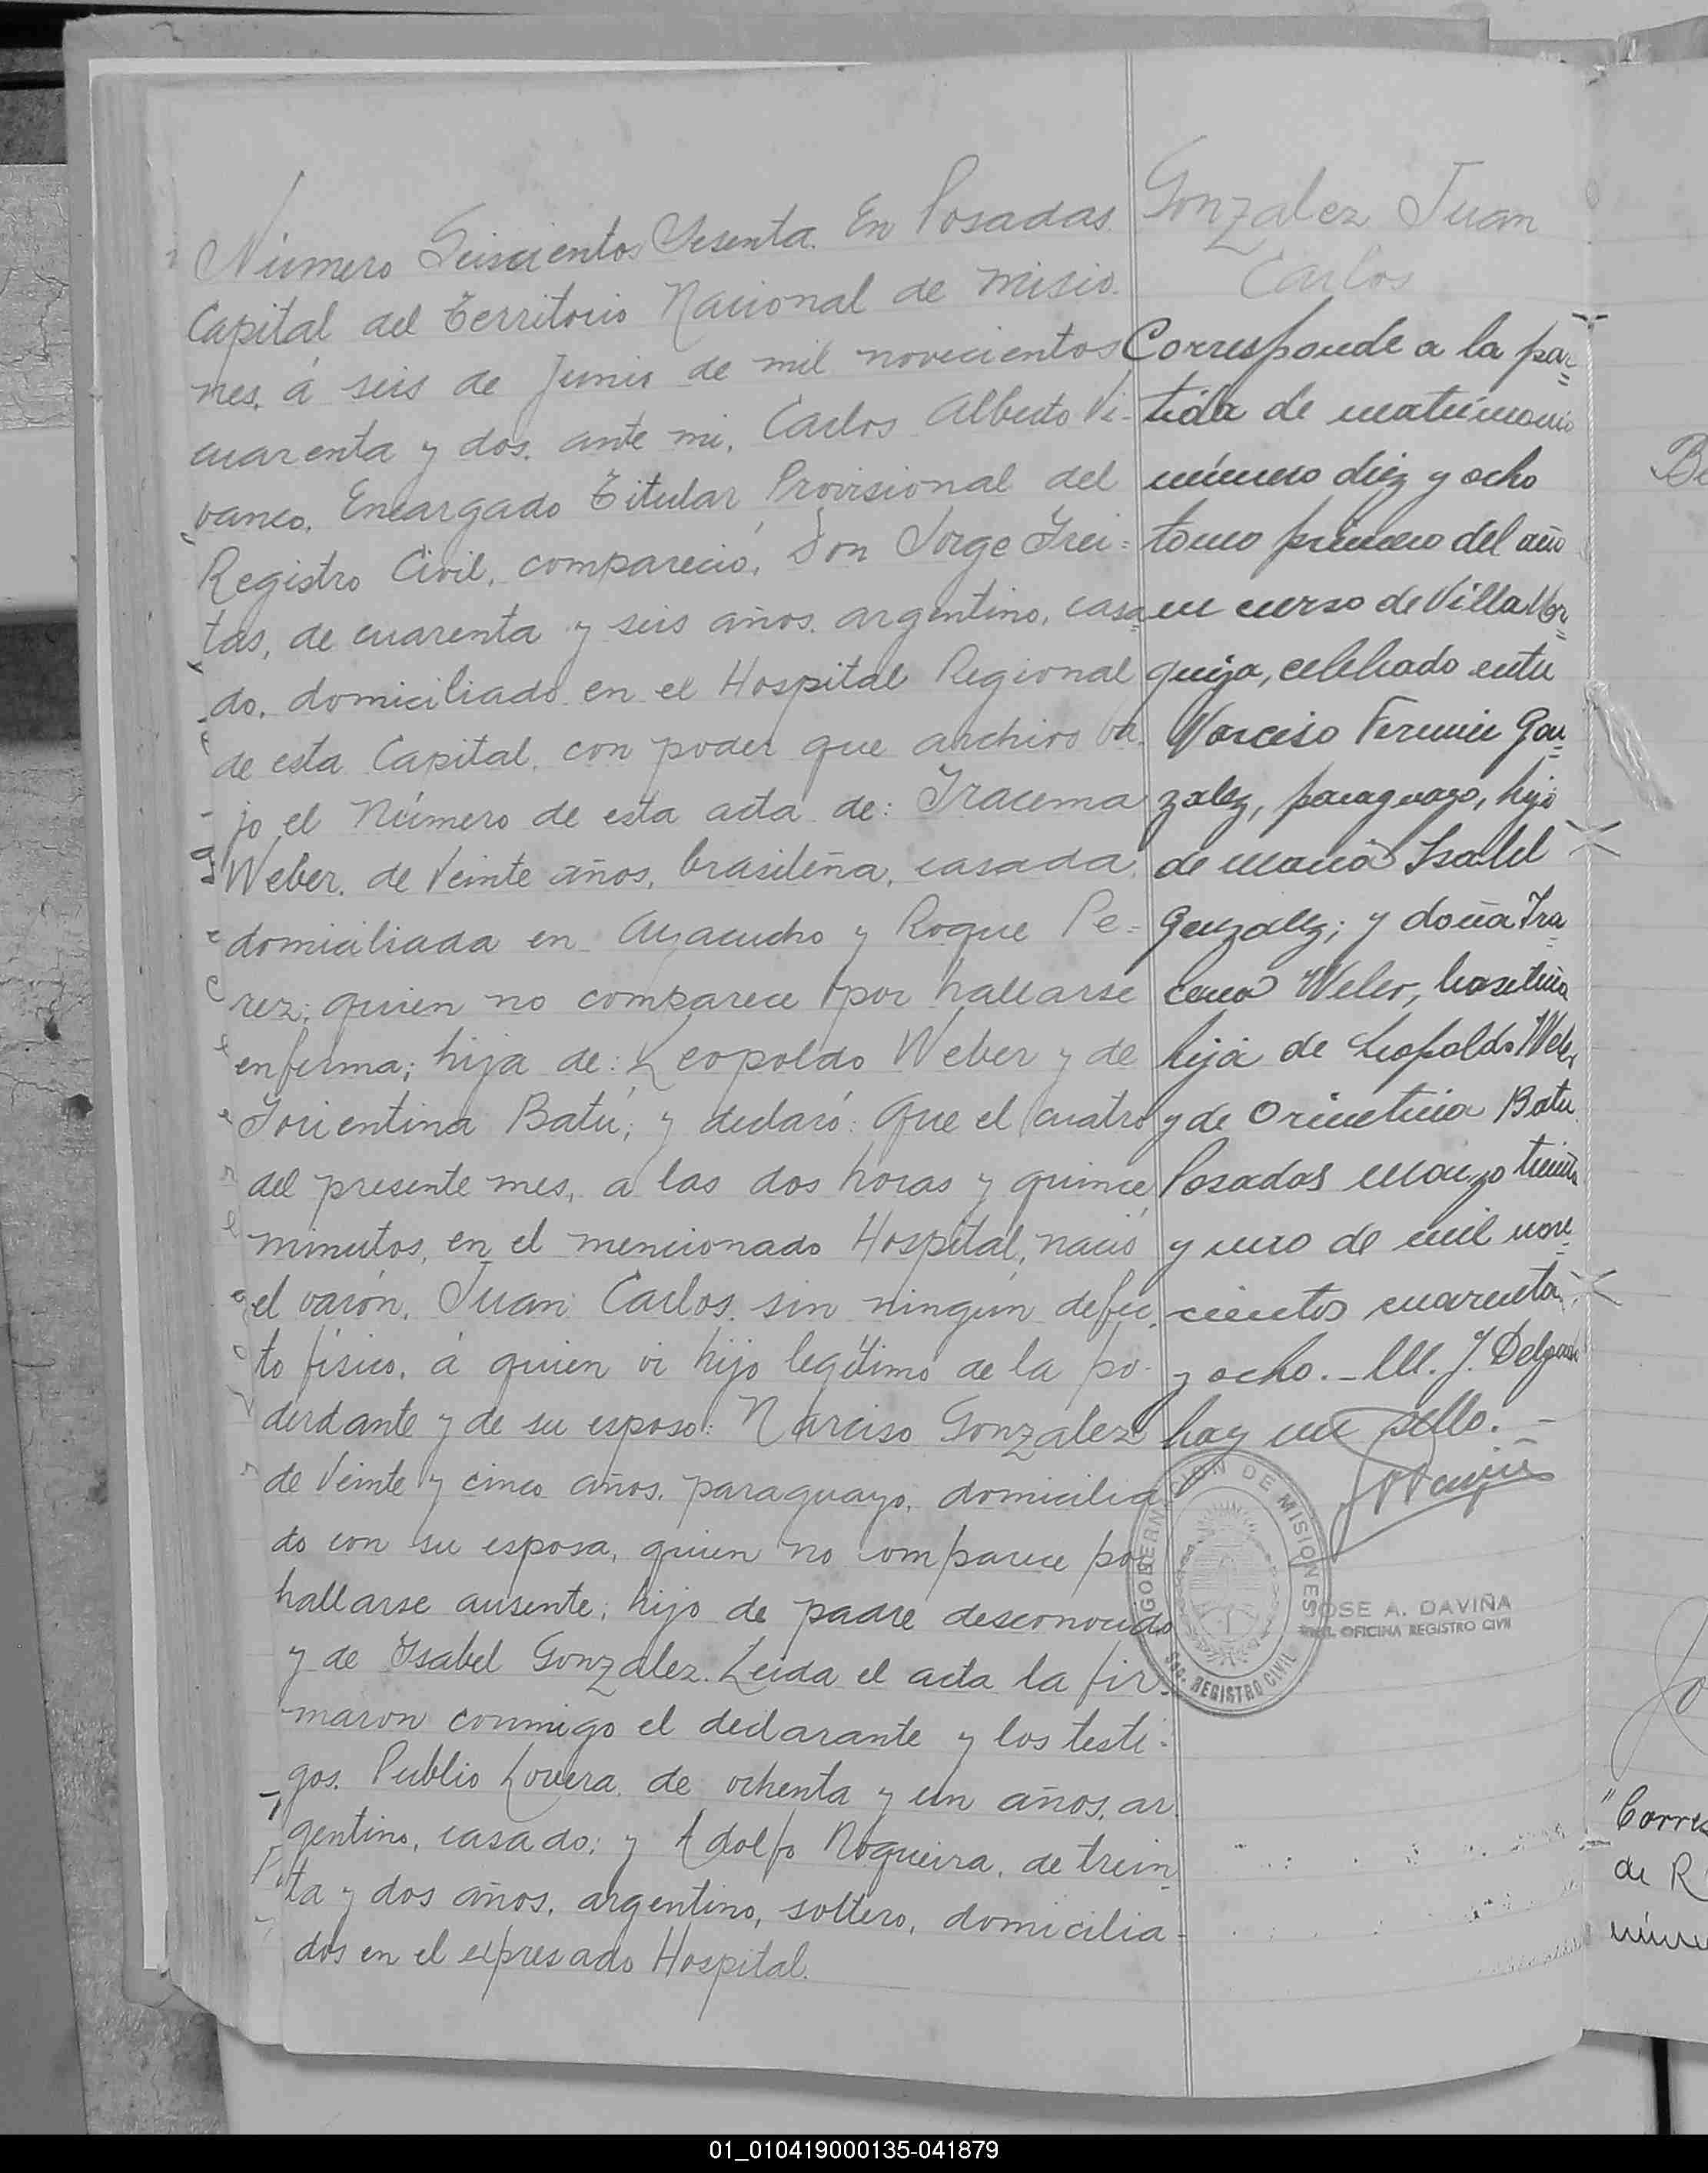 Número Seiscientos Sesenta. En Posadas
Capital del Territorio Nacional de Misio-
nes, á seis de Junio de mil novecientos
cuarenta y dos, ante mi, Carlos Alberto Vi-
vanco, Encargado Titular Provisional del
Registro Civil, compareció, Don Jorge Frei=
tas, de cuarenta y seis años, argentino, casa=
do, domiciliado en el Hospital Regional
de esta Capital, con poder que archivo ba-
jo el Número de esta acta de: Iracema
Weber, de Veinte años, brasileña, casada,
domiciliada en Ayacucho y Roque Pe=
rez; quien no comparece por hallarse
enferma; hija de: Leopoldo Weber y de
Orientina Batú; y declaró: Que el cuatro
del presente mes, a las dos horas y quince
minutos, en el mencionado Hospital, nació
el varón, Juan Carlos, sin ningún defec-
to físico, á quien vi hijo legítimo de la po-
derdante y de su esposo: Narciso Gonzalez
de Veinte y cinco años, paraguayo, domicilia-
do con su esposa, quien no comparece por
hallarse ausente; hijo de padre desconocido
y de Isabel Gonzalez. Leida el acta la fir-
maron conmigo el declarante y los testi-
gos, Publio Lovera, de ochenta y un años, ar-
gentino, casado; y Adolfo Nogueira, de trein-
ta y dos años, argentino, soltero, domicilia-
dos en el expresado Hospital.
Gonzalez Juan
Carlos
Corresponde a la par=
tida de matrimonio
número diez y ocho
tomo primero del año
en curso de Villa Ur=
quiza, celebrado entre
Narciso Fermin Gon=
zalez, paraguayo, hijo
de María Isabel
Gonzalez; y doña Ira=
cema Weber, brasileña
hija de Leopoldo Weber
y de Orientina Batu.
Posadas marzo treinta
y uno de mil nove=
cientos cuarenta
y ocho. - M. J. Delgado
hay un sello. -
GOBERNACION DE MISIONES
REGISTRO CIVIL
JOSE A. DAVIÑA
OFICINA REGISTRO CIVIL
"Corres
de R
núme
01_010419000135-041879